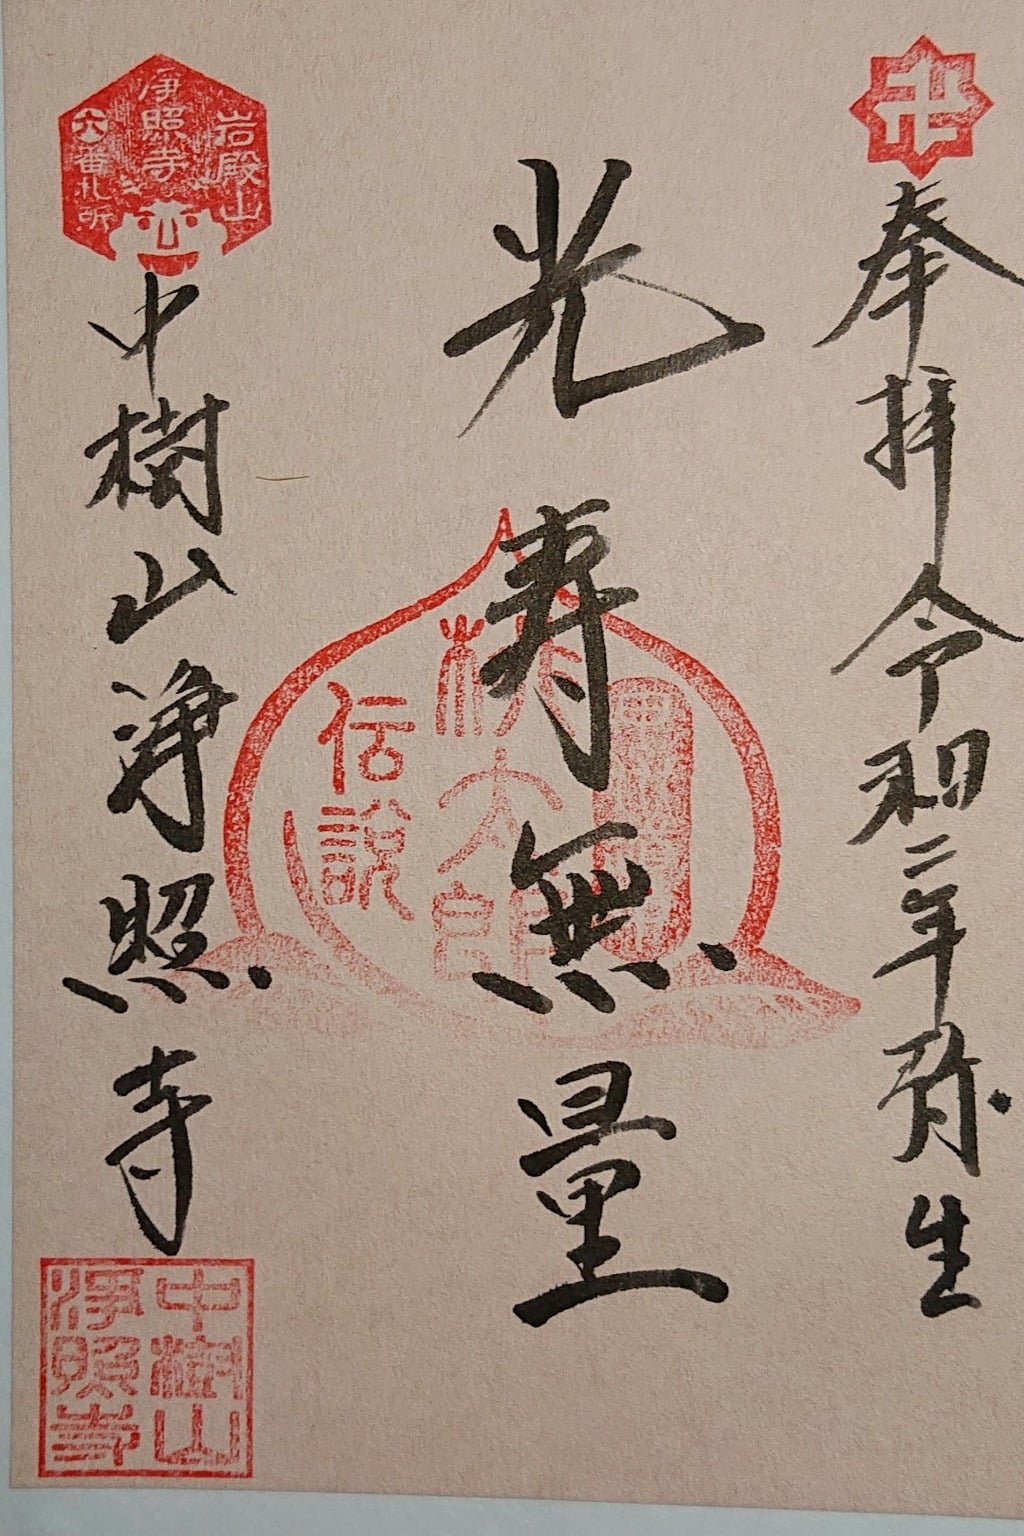 奉拝 令和二年弥生
光寿無量
桃太郎
伝説
中樹山浄照寺
岩殿山
浄照寺
六番札所
中樹山
浄照寺